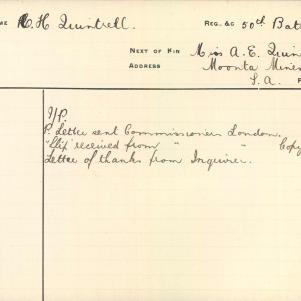 ME C H Quintrell. REG. &C 50th Batt
NEXT OF KIN Miss A. E. Quin
ADDRESS Moonta Mines
S.A.
I/P.
P. Letter sent Commissioners London.
"Slip" received from " " Copy
Letter of thanks from Inquirer.